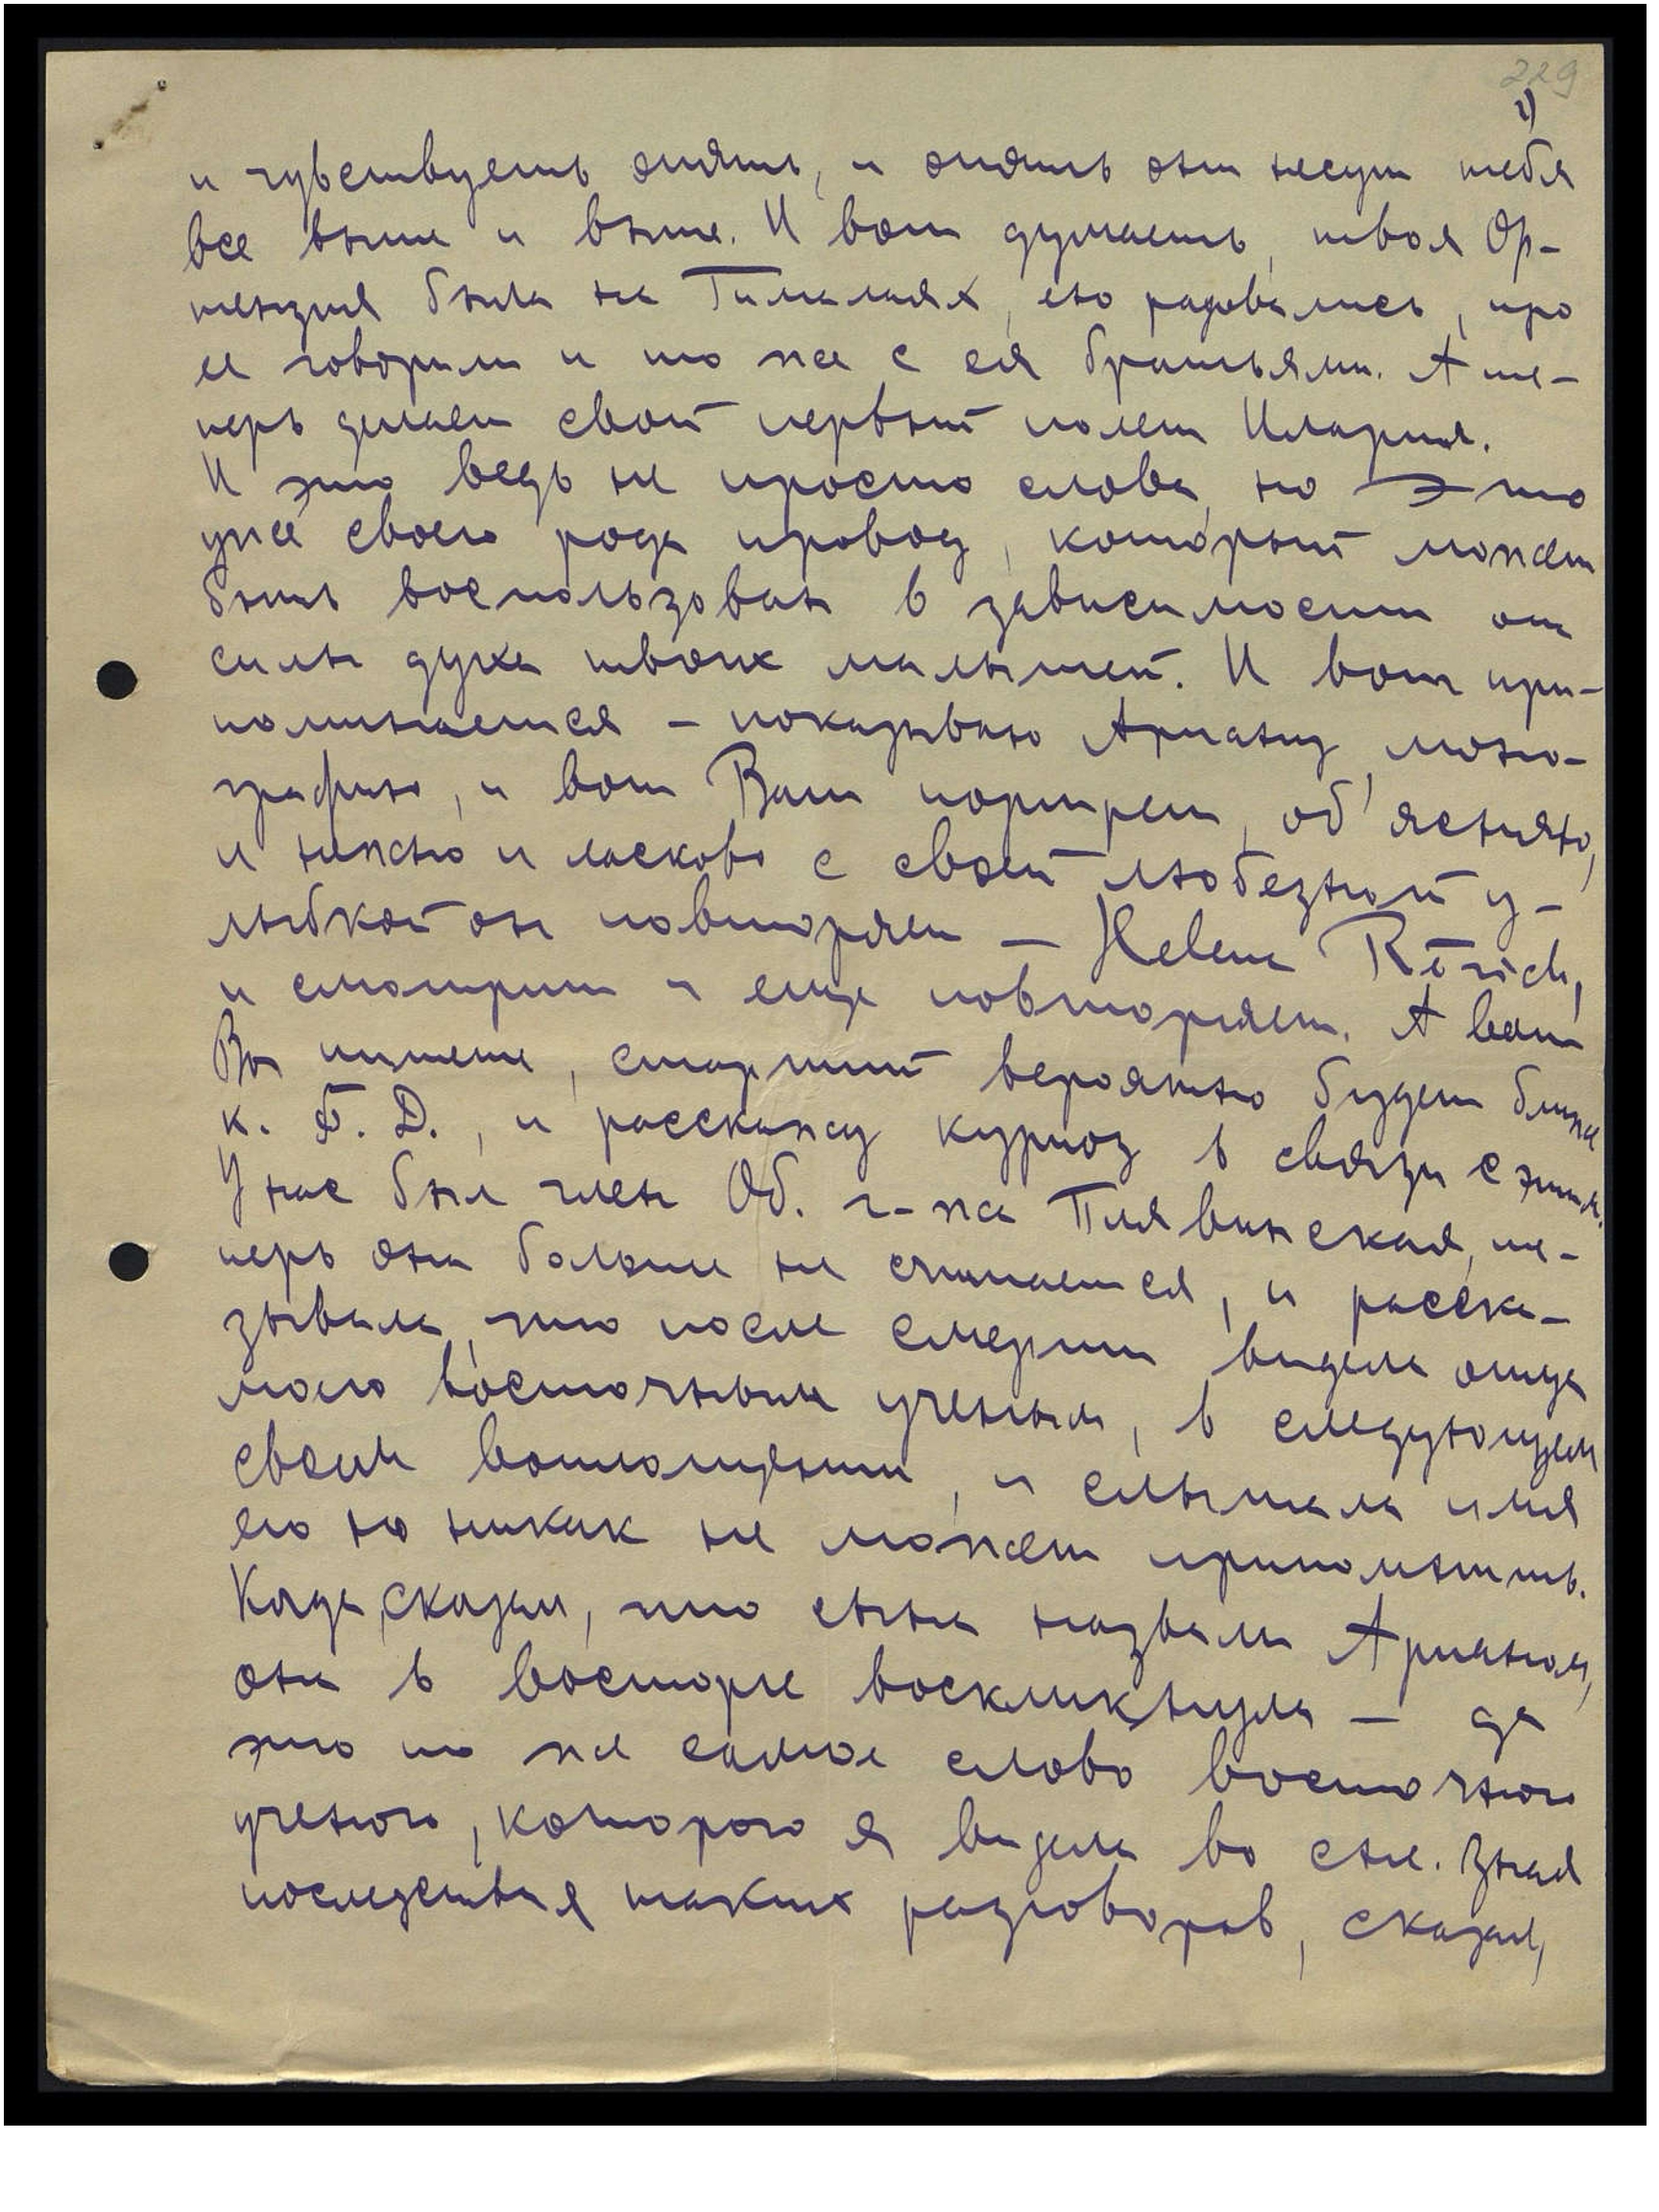 229
2)
и чувствуешь опять, и опять они несут тебя
все выше и выше. И вот думаешь, твоя Ор-
тензия была на Гималаях, ею радовались, про
ее говорили и то же с ея братьями. А те-
перь делает свой первый полет Илария.
И это ведь не просто слова, но это
уже своего рода провод, который может
быть воспользован в зависимости от
силы духа твоих малышей. И вот при-
поминается – показываю Ариану моно-
графию, и вот Ваш портрет, об'ясняю,
и нежно и ласково с своей любезной у-
лыбкой он повторяет – Helena Rērich,
и смотрит и еще повторяет. А вот
Вы пишете, старший вероятно будет ближе
к. Б. Д., и расскажу курьоз в связи с этим.
У нас был член Об. г-жа Плявинская, те-
перь она больше не считается, и расска-
зывала, что после смерти видела отца
моего восточным ученым, в следующем
своем воплощении, и слышала имя
его но никак не может припомнить.
Когда сказал, что сына назвали Арианом,
она в восторге воскликнула – да
это то же самое слово восточного
ученого, которого я видела во сне. Зная
последствия таких разговоров, сказал,